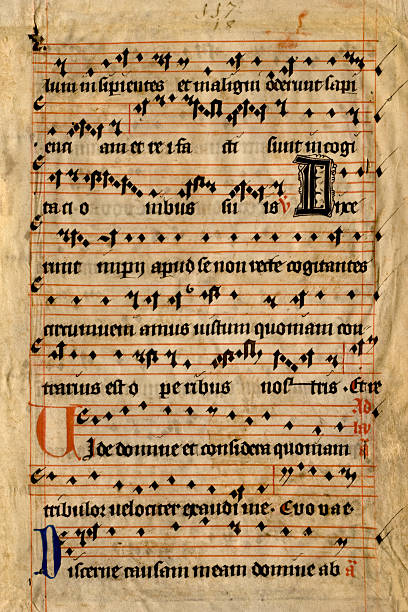 117
18
lum insipientes et maligni oderunt sapi
enci am et rei fa cti sunt in cogi
ta ci o nibus su is ℣ Dixe
runt impij apud se non recte cogitantes
circumueni amus iustum quoniam con
trarius est o pe ribus nos tris. Et re
Ad
Uide domine et considera quoniam
tribulor uelociter exaudi me. Euouae.
Discerne causam meam domine ab a